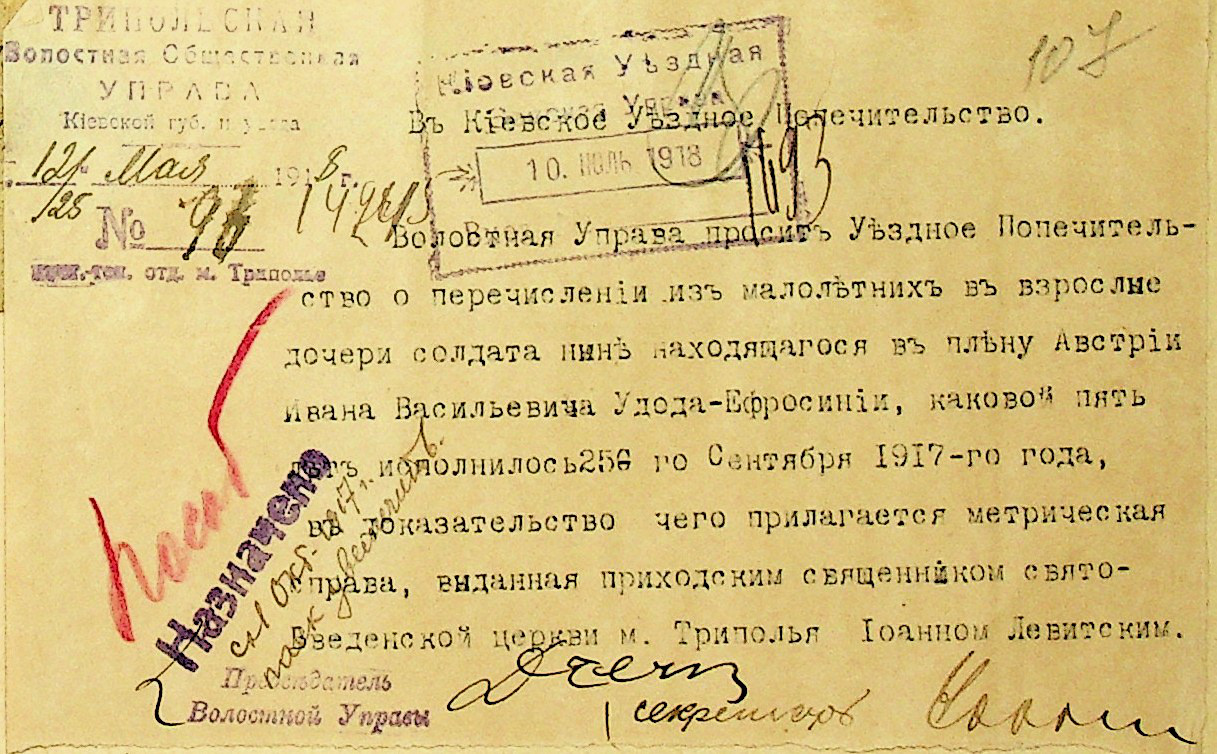 ТРИПОЛЬСКАЯ
Волостная Общественная
УПРАВА
Кіевской губ. и уѣзда
12/ Мая 1918 г.
125
№ 96
отд. м. Триполье
Кіевская Уѣздная
Управа
10. ІЮЛЬ 1918
1693
107
Въ Кіевское Уѣздное Попечительство.
Волостная Управа проситъ Уѣздное Попечитель-
ство о перечисленіи изъ малолѣтнихъ въ взрослые
дочери солдата нынѣ находящагося въ плѣну Австріи
Ивана Васильевича Удода-Ефросиніи, каковой пять
лѣтъ исполнилось 25 го Сентября 1917-го года,
въ доказательство чего прилагается метрическая
справа, выданная приходским священником свято-
Введенской церкви м. Триполья Іоанном Левитским.
Назначено
с 1 Окт. 1917 г.
Предсѣдатель
Волостной Управы
секретарь